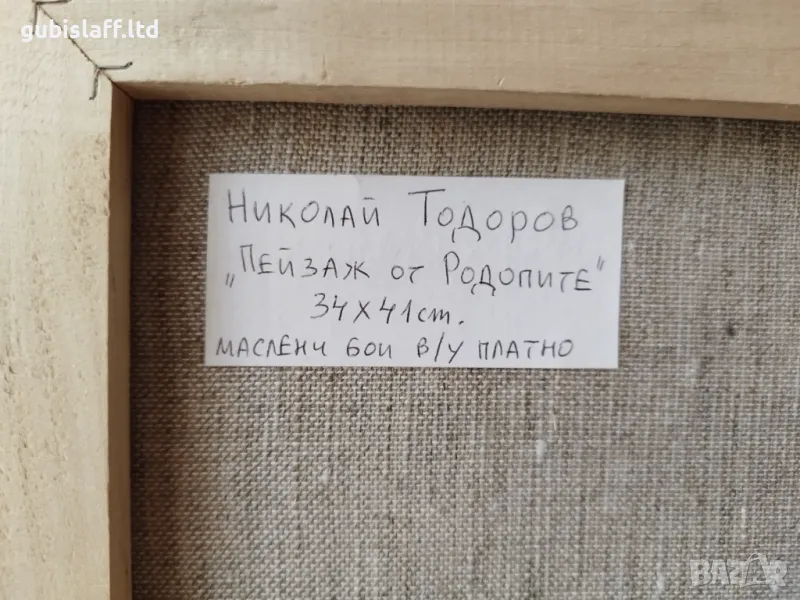 gubislaff.ltd
Николай Тодоров
„Пейзаж от Родопите"
34x41cm.
маслени бои в/у платно
BAZAR